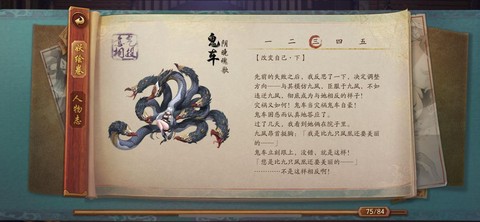 妖绘卷
人物志
鬼车
阴晚魂歌
一 二 三 四 五
【改变自己·下】
先前的失败之后，我反思了一下，决定调整
方向——与其模仿九凤，臣服于九凤，不如
遠比九凤，彻底成为与她相反的样子！
灾祸又如何！鬼车自灾祸鬼车自豪！
鬼车困惑而认真地答应了。
过了几天，我看到她俩在院子里，
九凤昂首挺胸：「我是比九只凤凰还要美丽
的——」
鬼车立刻跟上，没错，就是这样！
「您是比九只凤凰还要美丽的——」
…………不是这样相反啊！
75/84